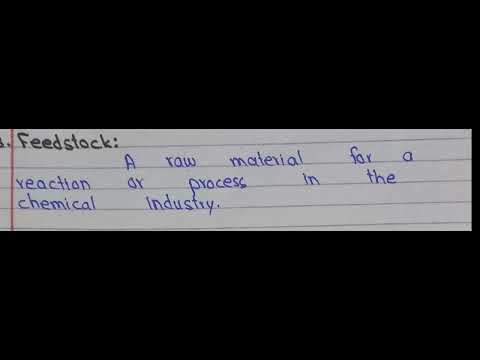 . Feedstock:
A raw material for a
reaction or process in the
chemical Industry.